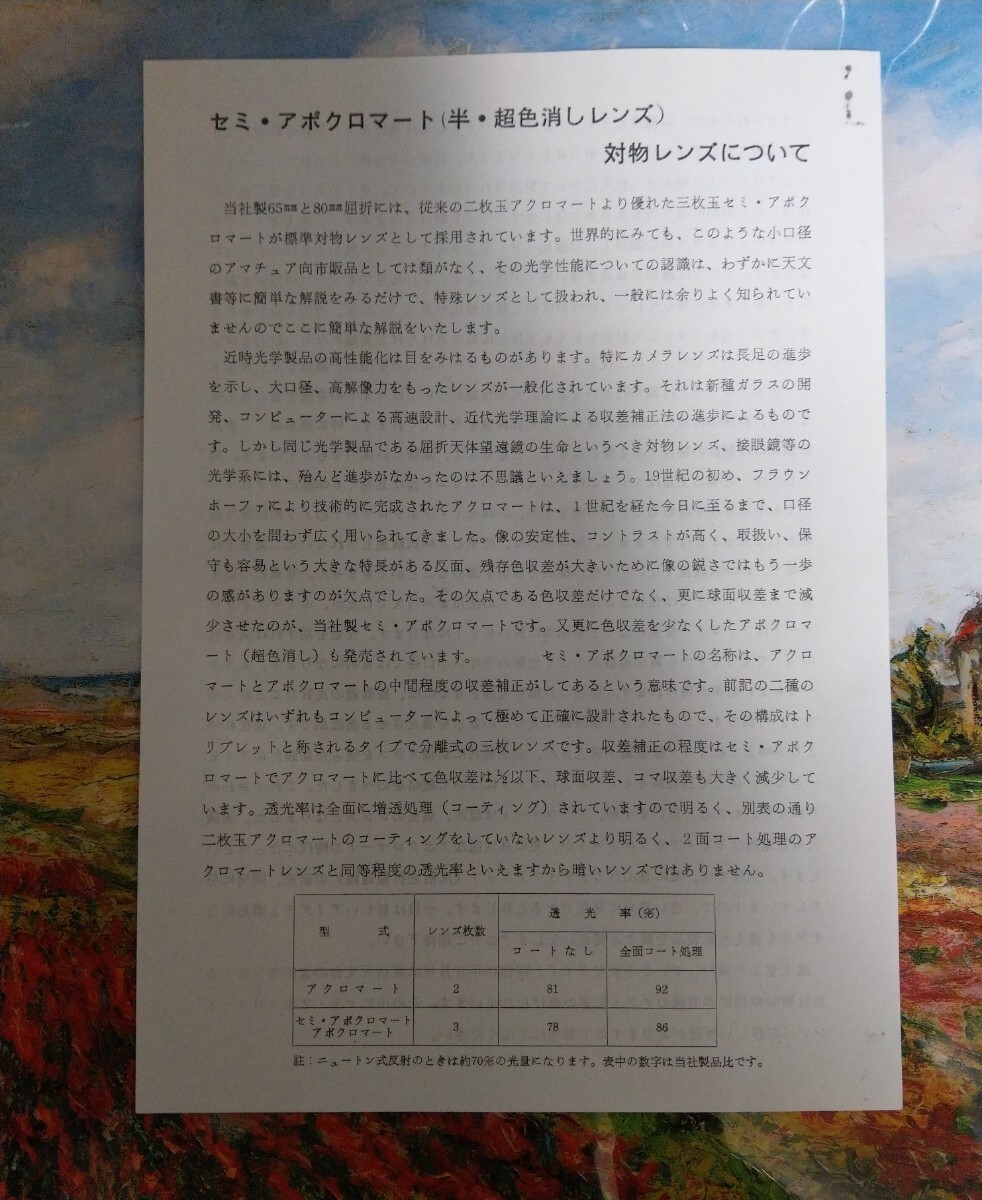 セミ・アポクロマート(半・超色消しレンズ)
対物レンズについて
当社製65㎜と80㎜屈折には、従来の二枚玉アクロマートより優れた三枚玉セミ・アポク
ロマートが標準対物レンズとして採用されています。世界的にみても、このような小口径
のアマチュア向市販品としては類がなく、その光学性能についての認識は、わずかに天文
書等に簡単な解説をみるだけで、特殊レンズとして扱われ、一般には余りよく知られてい
ませんのでここに簡単な解説をいたします。
近時光学製品の高性能化は目をみはるものがあります。特にカメラレンズは長足の進歩
を示し、大口径、高解像力をもったレンズが一般化されています。それは新種ガラスの開
発、コンピューターによる高速設計、近代光学理論による収差補正法の進歩によるもので
す。しかし同じ光学製品である屈折天体望遠鏡の生命というべき対物レンズ、接眼鏡等の
光学系には、殆んど進歩がなかったのは不思議といえましょう。19世紀の初め、フラウン
ホーファにより技術的に完成されたアクロマートは、1世紀を経た今日に至るまで、口径
の大小を問わず広く用いられてきました。像の安定性、コントラストが高く、取扱い、保
守も容易という大きな特長がある反面、残存色収差が大きいために像の鋭さではもう一歩
の感がありますのが欠点でした。その欠点である色収差だけでなく、更に球面収差まで減
少させたのが、当社製セミ・アポクロマートです。又更に色収差を少なくしたアポクロマ
ート(超色消し)も発売されています。 セミ・アポクロマートの名称は、アクロ
マートとアポクロマートの中間程度の収差補正がしてあるという意味です。前記の二種の
レンズはいずれもコンピューターによって極めて正確に設計されたもので、その構成はト
リプレットと称されるタイプで分離式の三枚レンズです。収差補正の程度はセミ・アポク
ロマートでアクロマートに比べて色収差は½以下、球面収差、コマ収差も大きく減少して
います。透光率は全面に増透処理(コーティング)されていますので明るく、別表の通り
二枚玉アクロマートのコーティングをしていないレンズより明るく、2面コート処理のア
クロマートレンズと同等程度の透光率といえますから暗いレンズではありません。
型式 レンズ枚数 透光率(%)
コートなし 全面コート処理
アクロマート 2 81 92
セミ・アポクロマート
アポクロマート 3 78 86
註:ニュートン式反射のときは約70%の光量になります。表中の数字は当社製品比です。